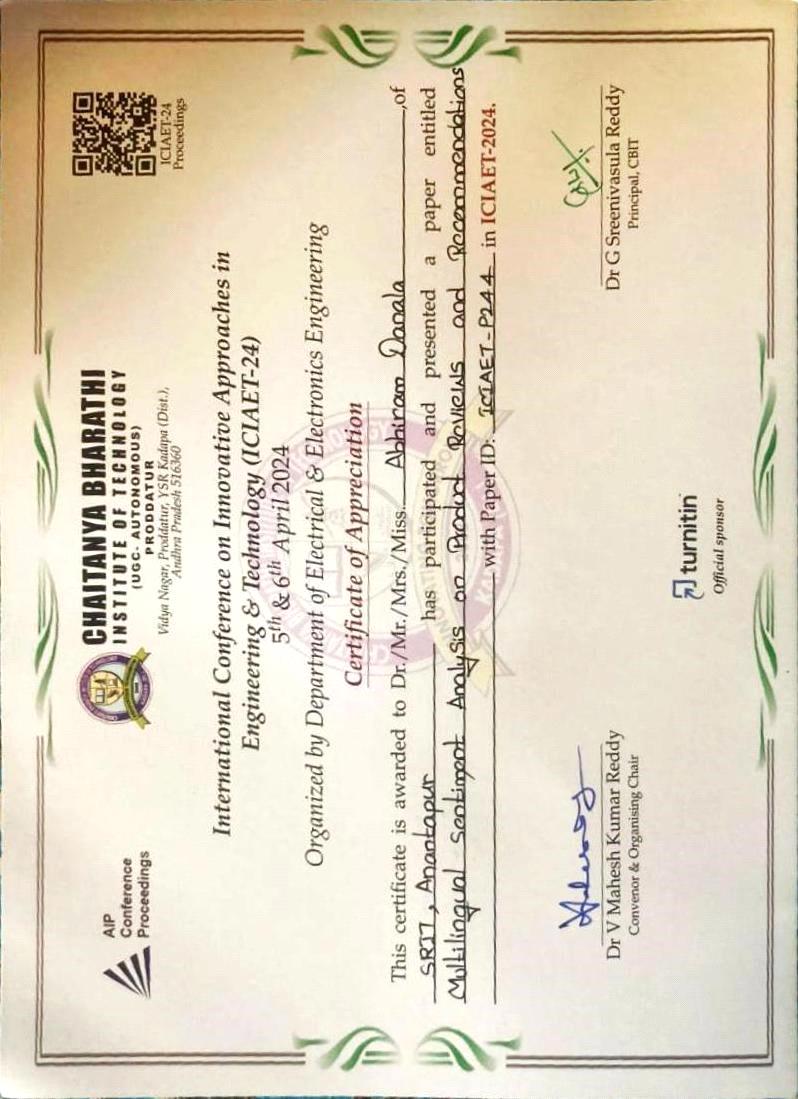 AIP
Conference
Proceedings
CHAITANYA BHARATHI
INSTITUTE OF TECHNOLOGY
(UGC- AUTONOMOUS)
PRODDATUR
Vidya Nagar, Proddatur, YSR Kadapa (Dist.),
Andhra Pradesh 516360
ICIAET-24
Proceedings
International Conference on Innovative Approaches in
Engineering & Technology (ICIAET-24)
5th & 6th April 2024
Organized by Department of Electrical & Electronics Engineering
Certificate of Appreciation
This certificate is awarded to Dr./Mr./Mrs./Miss. Abhiram Danala ,of
SRIT, Anantapur has participated and presented a paper entitled
Multilingual Sentiment Analysis on Product Reviews and Recommendations
with Paper ID: ICIAET-P244 in ICIAET-2024.
Dr V Mahesh Kumar Reddy
Convenor & Organising Chair
turnitin
Official sponsor
Dr G Sreenivasula Reddy
Principal, CBIT